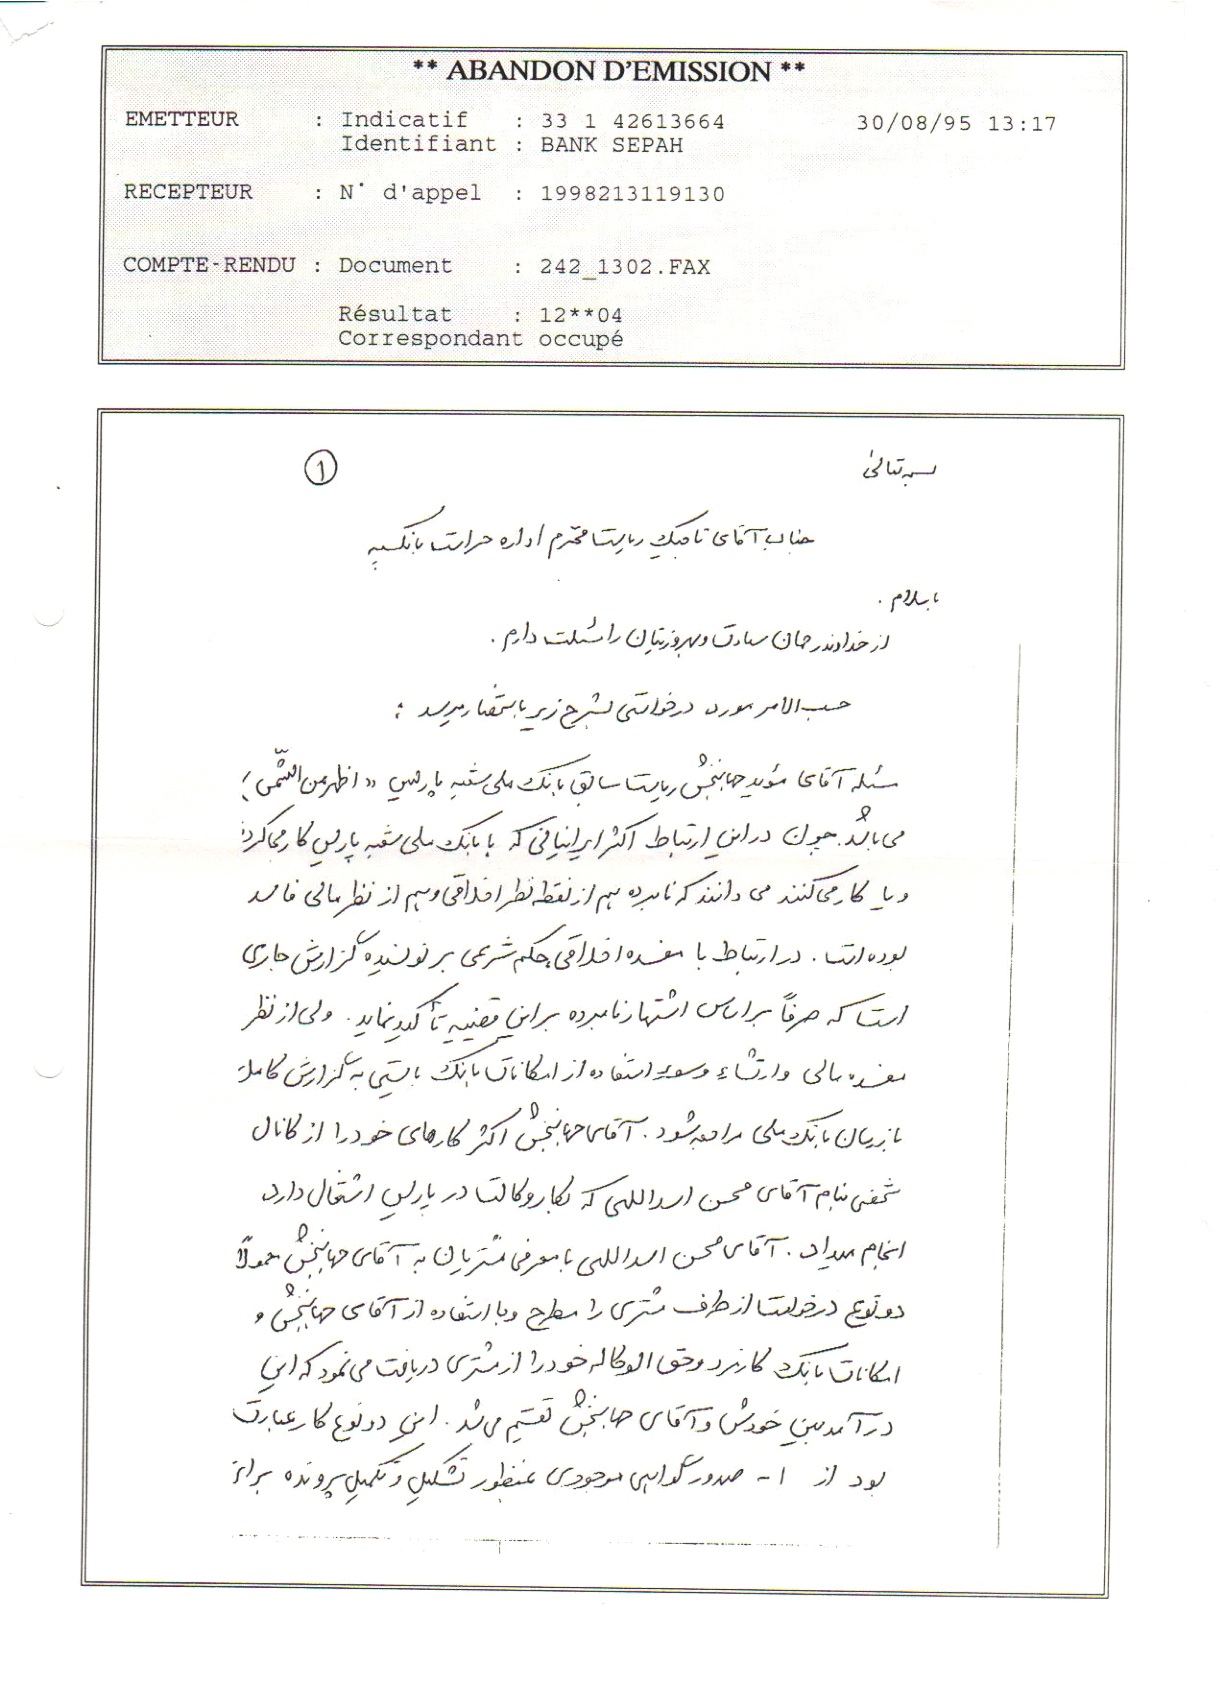 ** ABANDON D'EMISSION **
EMETTEUR : Indicatif : 33 1 42613664 30/08/95 13:17
Identifiant : BANK SEPAH
RECEPTEUR : N° d'appel : 1998213119130
COMPTE-RENDU : Document : 242_1302.FAX
Résultat : 12**04
Correspondant occupé
بسمه تعالی
1
جناب آقای ریاست محترم اداره حراست بانک سپه
با سلام .
از خداوند رحمان سعادت و بهروزیتان را مسئلت دارم .
حسب الامر مورد درخواستی بشرح زیر باستحضار میرسد :
مسئله آقای مؤید جهانبخش ریاست سابق بانک ملی شعبه پاریس «اظهر من الشمس»
می باشد. چون در این ارتباط اکثر ایرانیانی که با بانک ملی شعبه پاریس کار میکردند
و یا کار می کنند می دانند که نامبرده هم از نقطه نظر اخلاقی و هم از نظر مالی فاسد
بوده است . در ارتباط با مفسده اخلاقی حکم شرعی بر نویسنده گزارش جاری
است که صرفاً بر اساس اشتهار نامبرده بر این قضییه تأکید نماید . ولی از نظر
مفسده مالی و ارتشاء و سوء استفاده از امکانات بانک بایستی به گزارش کامله
بازرسان بانک ملی مراجعه شود . آقای جهانبخش اکثر کارهای خود را از کانال
شخصی بنام آقای محسن اسداللهی که بکار وکالت در پاریس اشتغال دارد
انجام میداد . آقای محسن اسداللهی با معرفی مشتریان به آقای جهانبخش معمولاً
دو نوع درخواست از طرف مشتری را مطرح و با استفاده از آقای جهانبخش و
امکانات بانک کارمزد و حق الوکاله خود را از مشتری دریافت می نمود که این
درآمد بین خودش و آقای جهانبخش تقسیم می شد . این دو نوع کار عبارت
بود از ۱- صدور گواهی موجودی بمنظور تشکیل و تکمیل پرونده برای